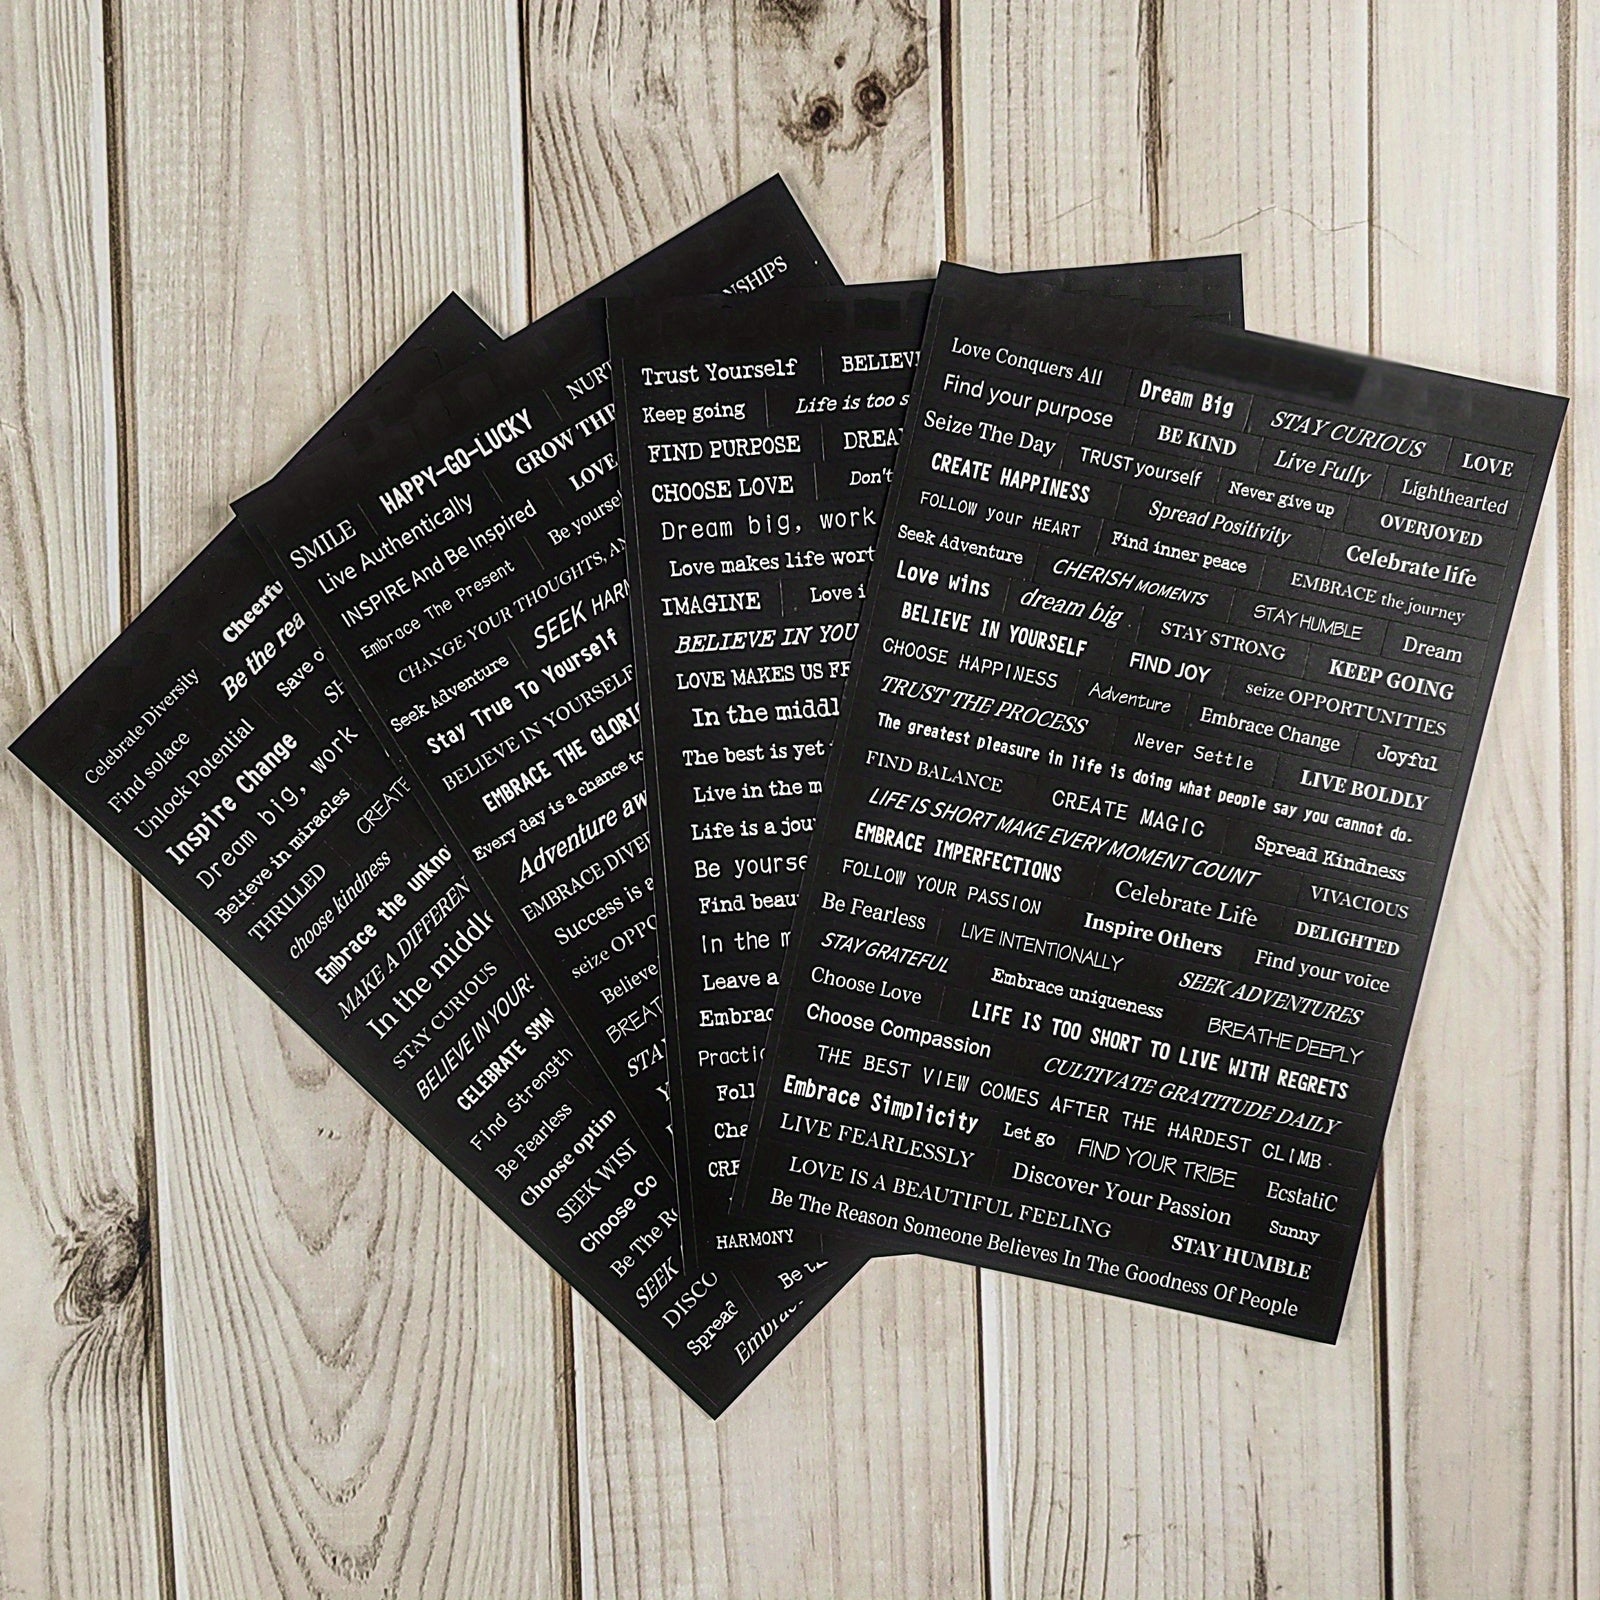 Celebrate Diversity Cheerfu
Find solace Be the rea
Unlock Potential Save o
Inspire Change
Dream big, work
Believe in miracles CREATE
THRILLED
choose kindness
Embrace the unkno
MAKE A DIFFEREN
In the middle
STAY CURIOUS
BELIEVE IN YOURS
CELEBRATE SMA
Find Strength
Be Fearless
Choose optim
SEEK WISI
Choose Co
Be The Re
SEEK
DISCO
Spread
NSHIPS
SMILE HAPPY-GO-LUCKY NURT
Live Authentically GROW THR
INSPIRE And Be Inspired LOVE
Embrace The Present Be yoursel
CHANGE YOUR THOUGHTS, AN
Seek Adventure SEEK HARM
Stay True To Yourself
BELIEVE IN YOURSELF
EMBRACE THE GLORIO
Every day is a chance to
Adventure aw
EMBRACE DIVER
Success is a
seize OPPO
Believe
BREAT
STA
Trust Yourself BELIEV
Keep going Life is too s
FIND PURPOSE DREA
CHOOSE LOVE Don't
Dream big, work
Love makes life wort
IMAGINE Love i
BELIEVE IN YOU
LOVE MAKES US FE
In the middl
The best is yet
Live in the m
Life is a jou
Be yourse
Find beau
In the m
Leave a
Embrac
Practic
Foll
Cha
CRE
HARMONY
Love Conquers All Dream Big STAY CURIOUS LOVE
Find your purpose BE KIND Live Fully Lighthearted
Seize The Day TRUST yourself Never give up OVERJOYED
CREATE HAPPINESS Spread Positivity Celebrate life
FOLLOW your HEART Find inner peace EMBRACE the journey
Seek Adventure CHERISH MOMENTS STAY HUMBLE Dream
Love wins dream big STAY STRONG KEEP GOING
BELIEVE IN YOURSELF FIND JOY seize OPPORTUNITIES
CHOOSE HAPPINESS Adventure Embrace Change Joyful
TRUST THE PROCESS Never Settle LIVE BOLDLY
The greatest pleasure in life is doing what people say you cannot do.
FIND BALANCE CREATE MAGIC Spread Kindness
LIFE IS SHORT MAKE EVERY MOMENT COUNT VIVACIOUS
EMBRACE IMPERFECTIONS Celebrate Life DELIGHTED
FOLLOW YOUR PASSION Inspire Others Find your voice
Be Fearless LIVE INTENTIONALLY SEEK ADVENTURES
STAY GRATEFUL Embrace uniqueness BREATHE DEEPLY
Choose Love LIFE IS TOO SHORT TO LIVE WITH REGRETS
Choose Compassion CULTIVATE GRATITUDE DAILY
THE BEST VIEW COMES AFTER THE HARDEST CLIMB.
Embrace Simplicity Let go FIND YOUR TRIBE EcstatiC
LIVE FEARLESSLY Discover Your Passion Sunny
LOVE IS A BEAUTIFUL FEELING STAY HUMBLE
Be The Reason Someone Believes In The Goodness Of People